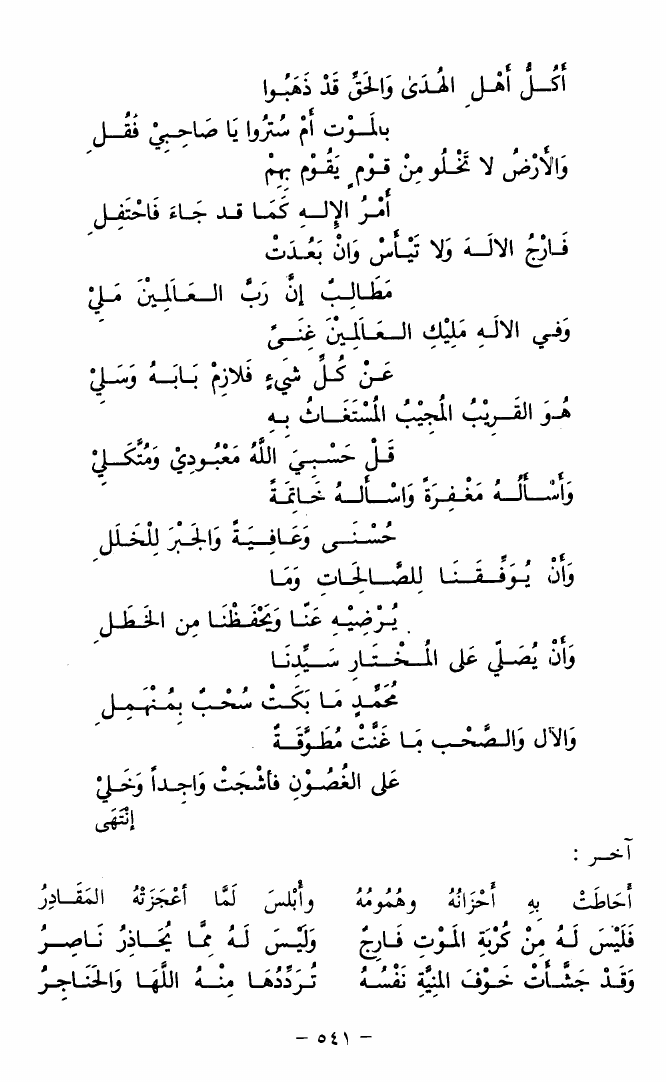 أَكُـلُّ أَهْـلِ الهُـدَىٰ وَالحَقِّ قَدْ ذَهَبُـوا
بالمَـوْت أَمْ سُتِرُوا يَا صَاحِبِيْ فَقُـلِ
وَالأَرْضُ لا تَخْـلُو مِنْ قـوْمٍ يَقُوْم بِهِمْ
أَمْـرُ الإِلـهِ كَمَـا قـد جَـاءَ فَاحْتَفِـلِ
فَـارْجُ الالَـهَ وَلا تَيْـأَسْ وَانْ بَعُـدَتْ
مَطَـالِـبٌ إِنَّ رَبَّ العَـالَمِـيْنَ مَـلِيْ
وَفـي الالَـهِ مَلِيْكِ العَـالَمِيْنَ غِنَـىً
عَـنْ كُـلِّ شَيءٍ فَلازِمْ بَـابَـهُ وَسَـلِيْ
هُـوَ القَـرِيْبُ المُجِيْبُ المُسْتَغَـاثُ بِـهِ
قُـلْ حَسْـبِـيَ اللَّهُ مَعْبُـودِيْ وَمُتَّكَـلِيْ
وَأَسْـأَلُـهُ مَغْـفِـرَةً وَاسْـألـهُ خَـاتِمَـةً
حُسْنَـى وَعَـافِيَـةً وَالجَبْرَ لِلْخَلَلِ
وَأَنْ يُـوَفِّـقَـنَـا لِلصَّـالِحَاتِ وَمَـا
يُـرْضِيْـهِ عَنَّـا وَيَحْفَظْنَـا مِن الخَطَـلِ
وَأَنْ يُصَـلِّي عَلى المُخْـتَـارِ سَـيِّـدِنَـا
مُحَمَّـدٍ مَـا بَكَـتْ سُحْـبٌ بِمُـنْهَـمِـلِ
وَالآل وَالصَّحْـب مَـا غَنَّتْ مُطَـوَّقَـةٌ
عَلى الغُصُـوْنِ فأشْجَتْ وَاجِـداً وَخَـلِيْ
إنْتَهَى
آخـر :
أَحَاطَتْ بِهِ أَحْزَانُهُ وهُمُومُهُ وأُبْلِسَ لَمَّا أعْجَزَتْهُ المَقَـادِرُ
فَلَيْسَ لَـهُ مِنْ كُرْبَةِ المَوْتِ فَـارِجٌ وَلَيْسَ لَـهُ مِمَّا يُحَـاذِرُ نَـاصِـرُ
وَقَـدْ جَشَـأَتْ خَوْفَ المنِيَّةِ نَفْسُـهُ تُـرَدِّدُهَـا مِنْـهُ اللَّهَـا وَالحَنَاجِرُ
- ٥٤١ -